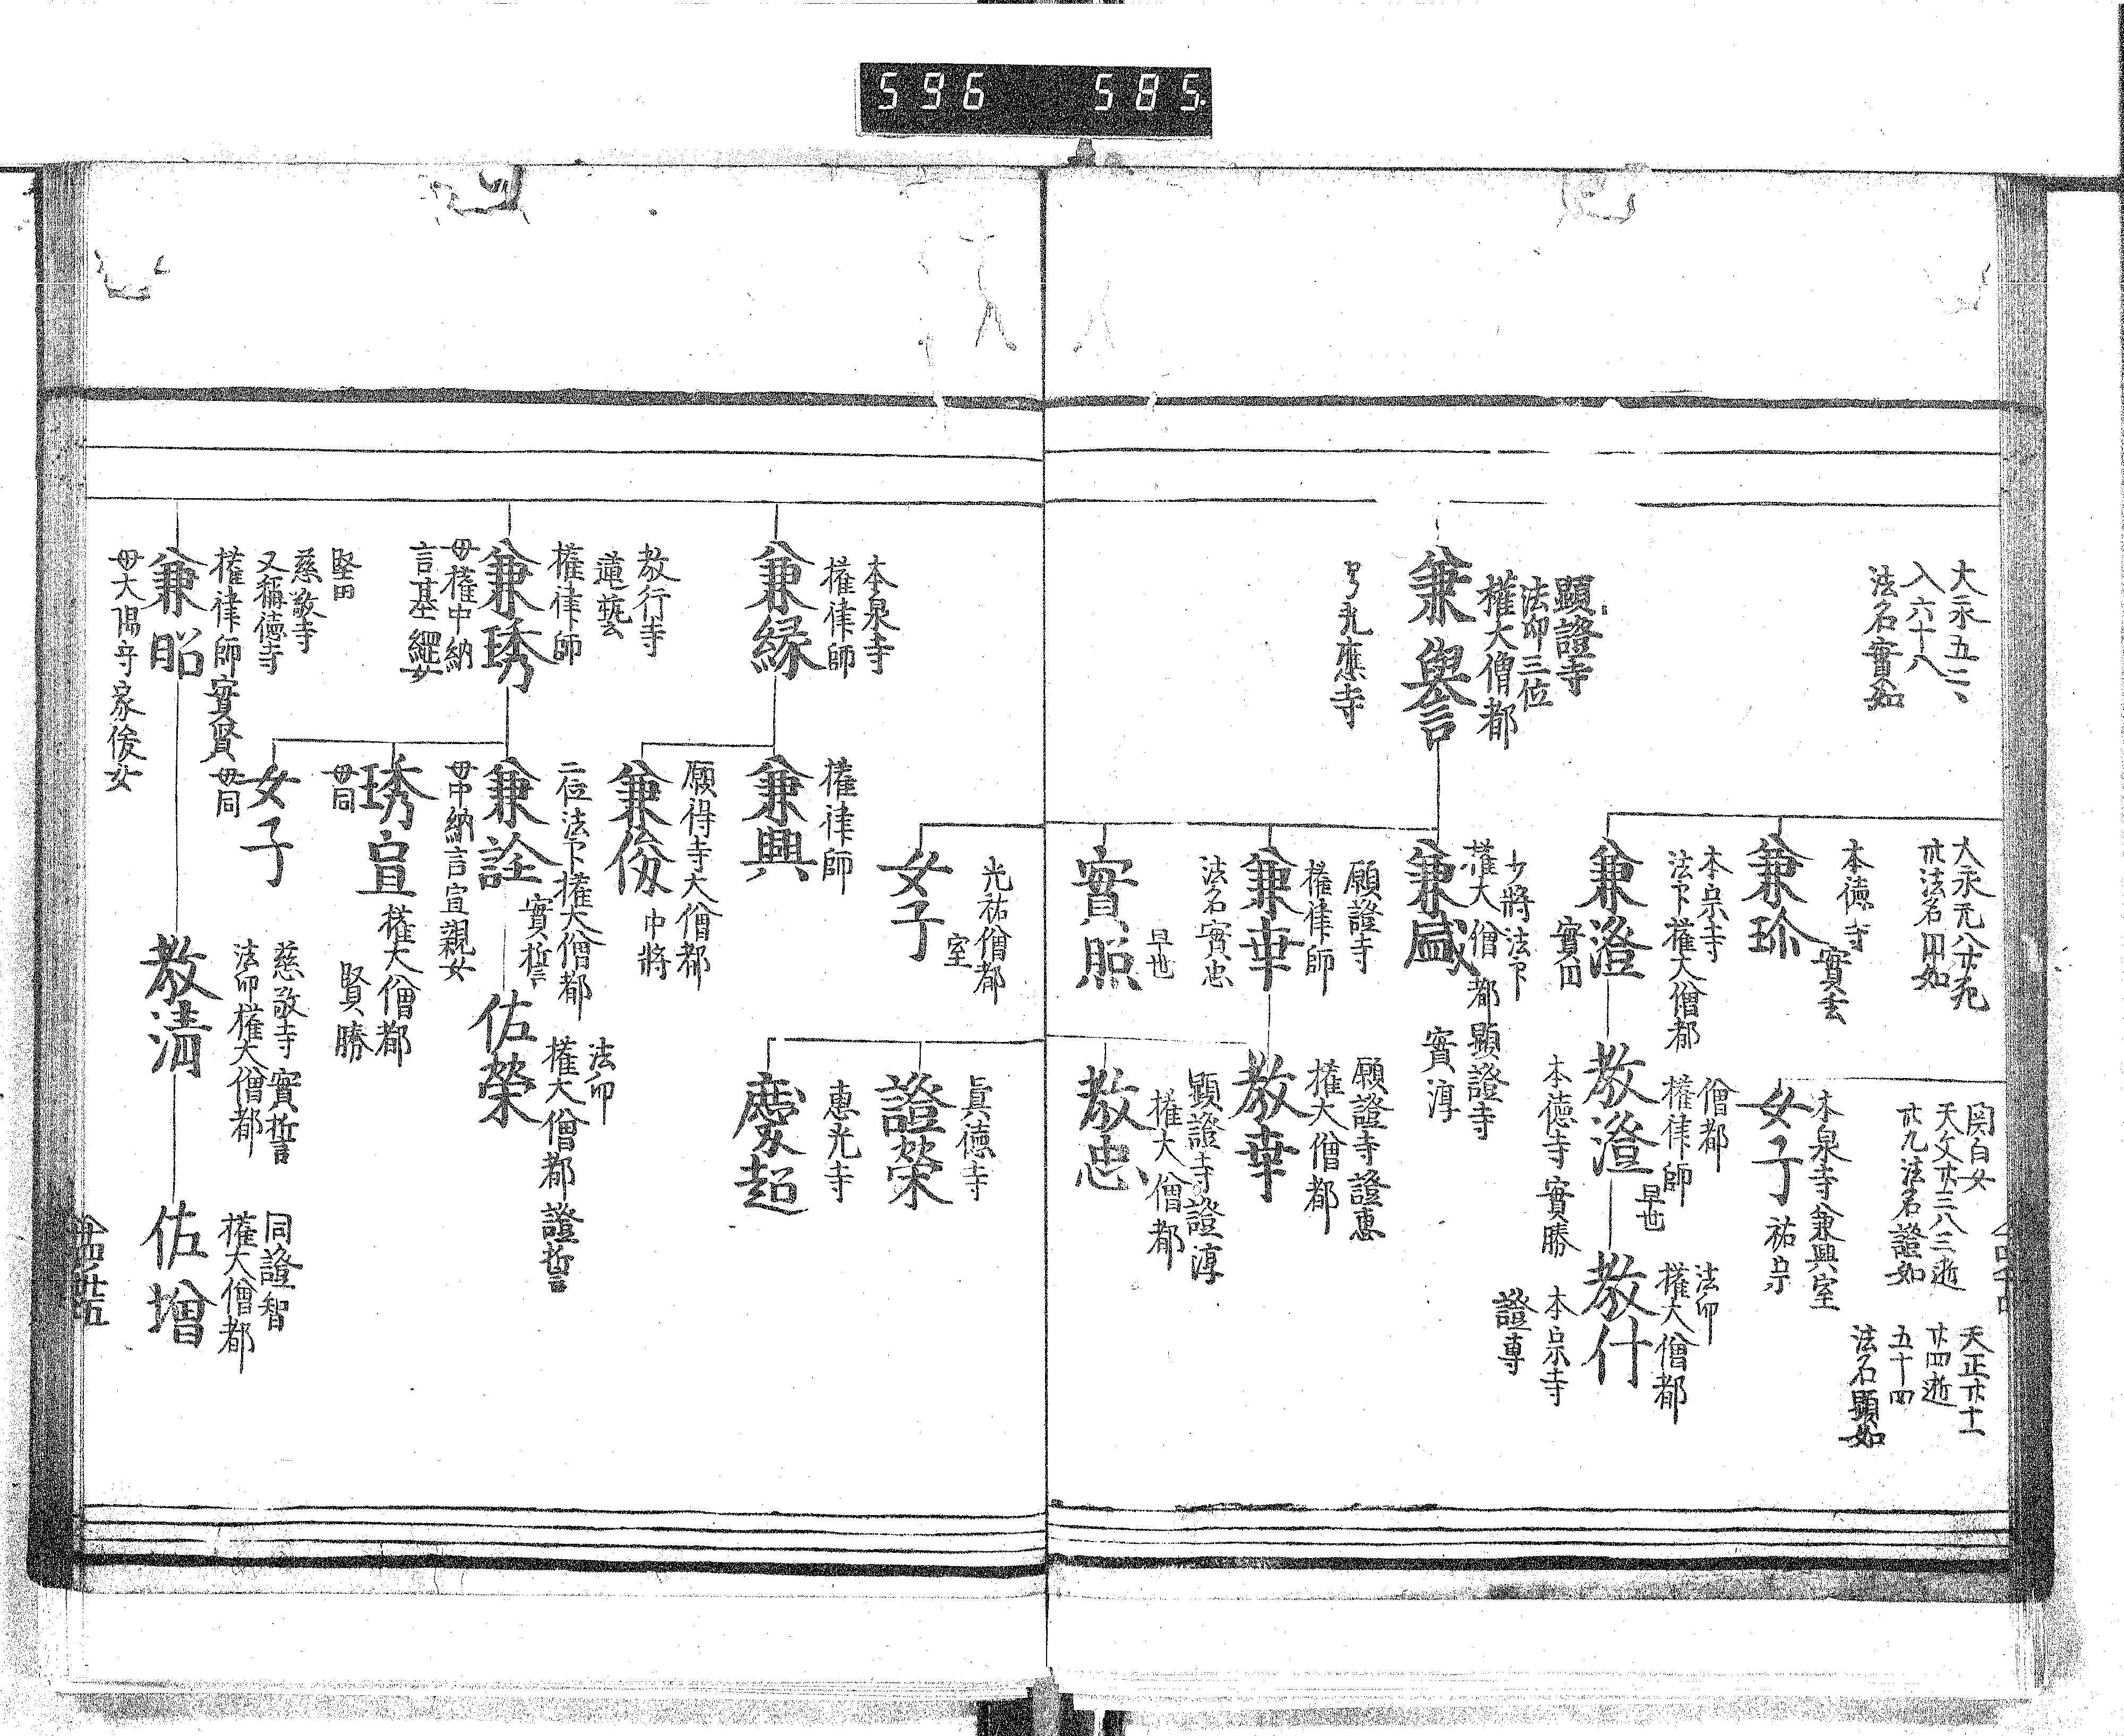 596 585
大永五二ゝ
入六十八
法名實如
顯證寺
法印三位
權大僧都
兼譽
号光應寺
大永元八廿九
法名円如
本德寺
實玄
兼珎
本宗寺
法下權大僧都
兼澄
實円
少將法下
權大僧都顯證寺
兼盛
實淳
願證寺
權律師
兼幸
法名實忠
早世
實照
光祐僧都
室
女子
関白女
天文廿三八三逝
廿九法名證如
本泉寺兼興室
女子
祐宗
僧都
權律師
早世
教澄
本德寺實勝
願證寺證惠
權大僧都
教幸
顯證寺證淳
權大僧都
教忠
眞德寺
證榮
惠光寺
慶超
天正廿十一
廿四逝
五十四
法名顯如
法印
權大僧都
教什
本宗寺
證專
本泉寺
權律師
兼緣
教行寺
蓮藝
權律師
兼琇
母權中納
言基綱女
堅田
慈敬寺
又稱德寺
權律師實賢
兼照
母大隅守家俊女
權律師
兼興
願得寺大僧都
中將
兼俊
二位法下權大僧都
實誓
兼詮
母中納言宣親女
琇宣
權大僧都
賢勝
母同
女子
母同
法印
權大僧都證誓
佐榮
慈敬寺實誓
法印權大僧都
教清
同證智
權大僧都
佐增